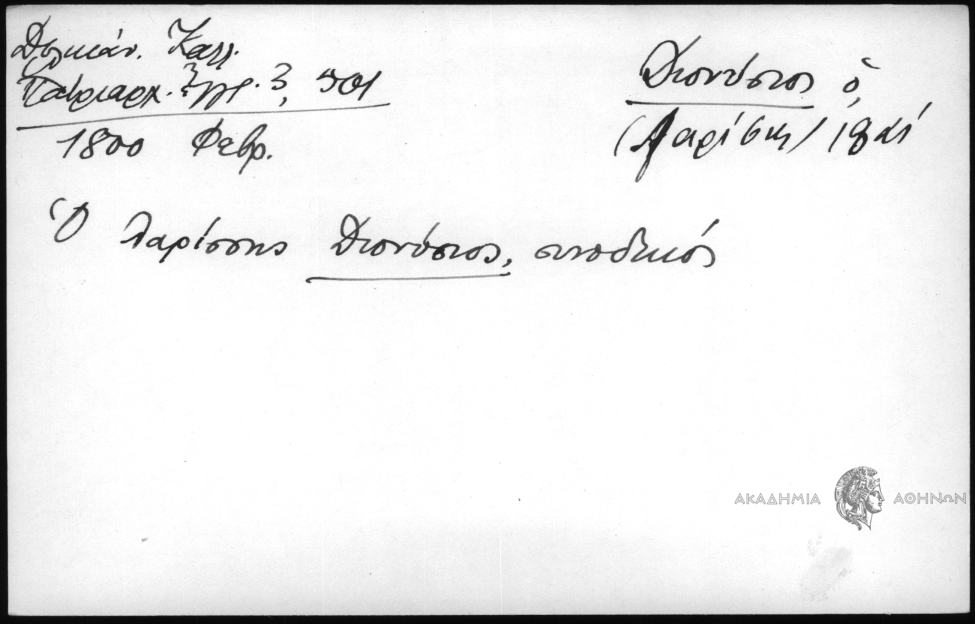 Δελικάν. Καλλ.
Πατριαρχ. Ἔγγρ. 3, 501
1800 Φεβρ.
Διονύσιος ὁ,
(Λαρίσης)
Ὁ Λαρίσσης Διονύσιος, συνοδικός
ΑΚΑΔΗΜΙΑ ΑΘΗΝΩΝ